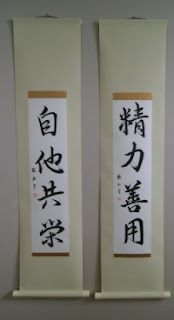 精力善用
自他共栄